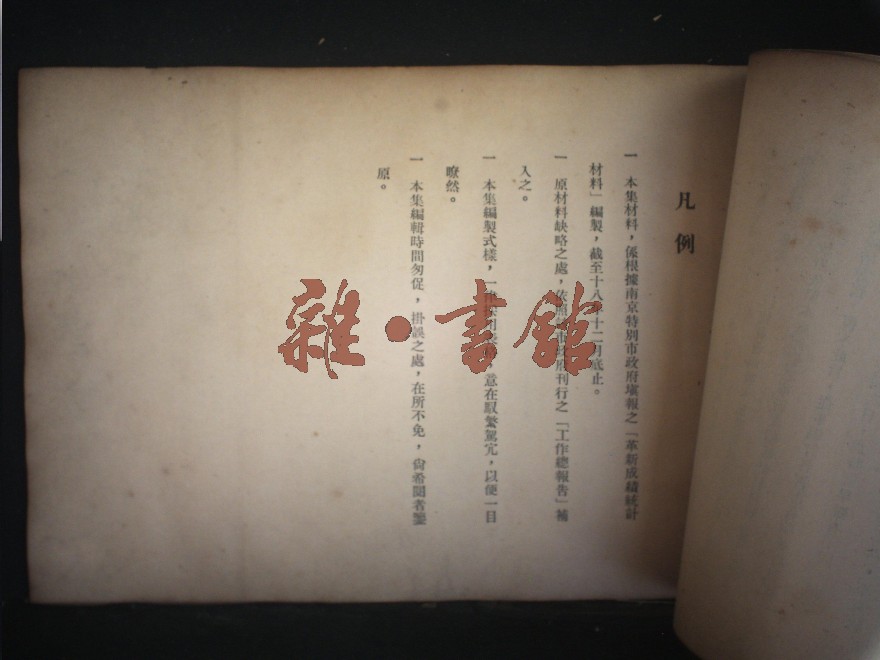 凡例
一 本集材料，係根據南京特別市政府填報之「革新成績統計
材料」編製，截至十八年十二月底止。
一 原材料缺略之處，依照 市政府刊行之「工作總報告」補
入之。
一 本集編製式樣，一 ，意在馭繁駕冗，以便一目
暸然。
一 本集編輯時間匆促，掛誤之處，在所不免，尙希閱者鑒
原。
雜·書館